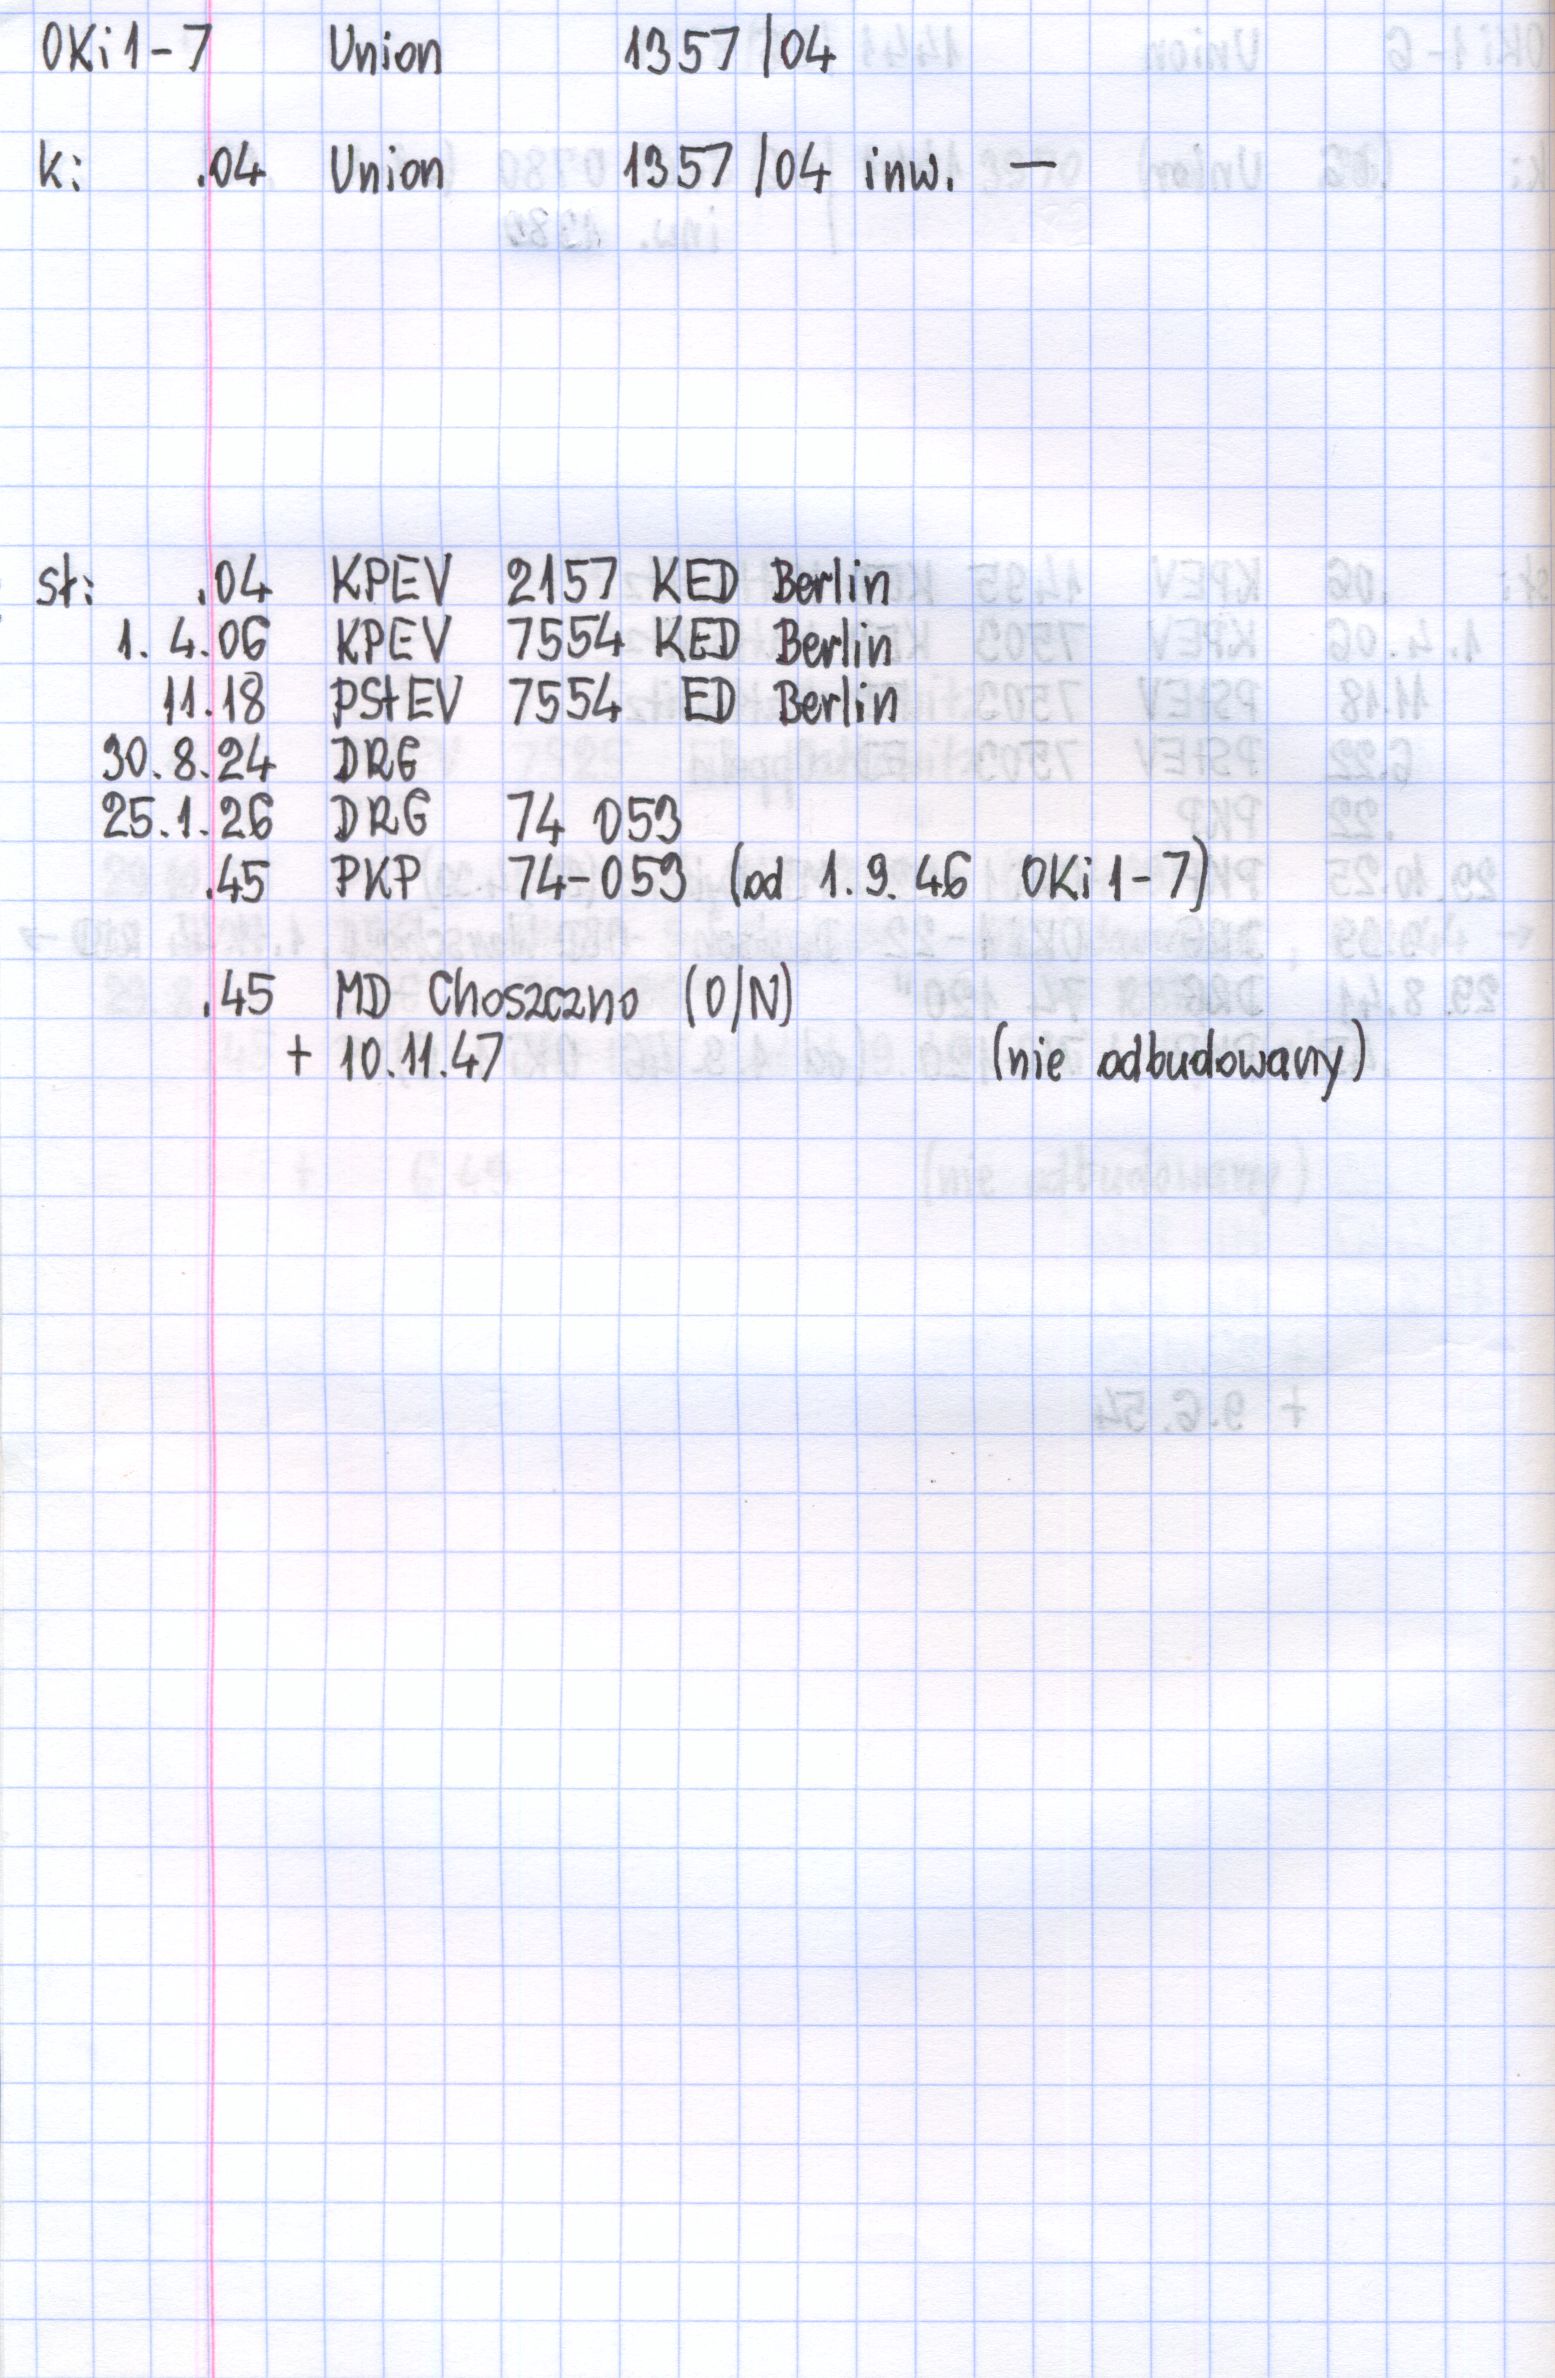 OKi1-7 Union 1357/04
k: .04 Union 1357/04 inw. —
st: .04 KPEV 2157 KED Berlin
1.4.06 KPEV 7554 KED Berlin
11.18 PStEV 7554 ED Berlin
30.8.24 DRG
25.1.26 DRG 74 053
.45 PKP 74-053 (od 1.9.46 OKi1-7)
.45 MD Choszczno (O/N)
+ 10.11.47 (nie odbudowany)